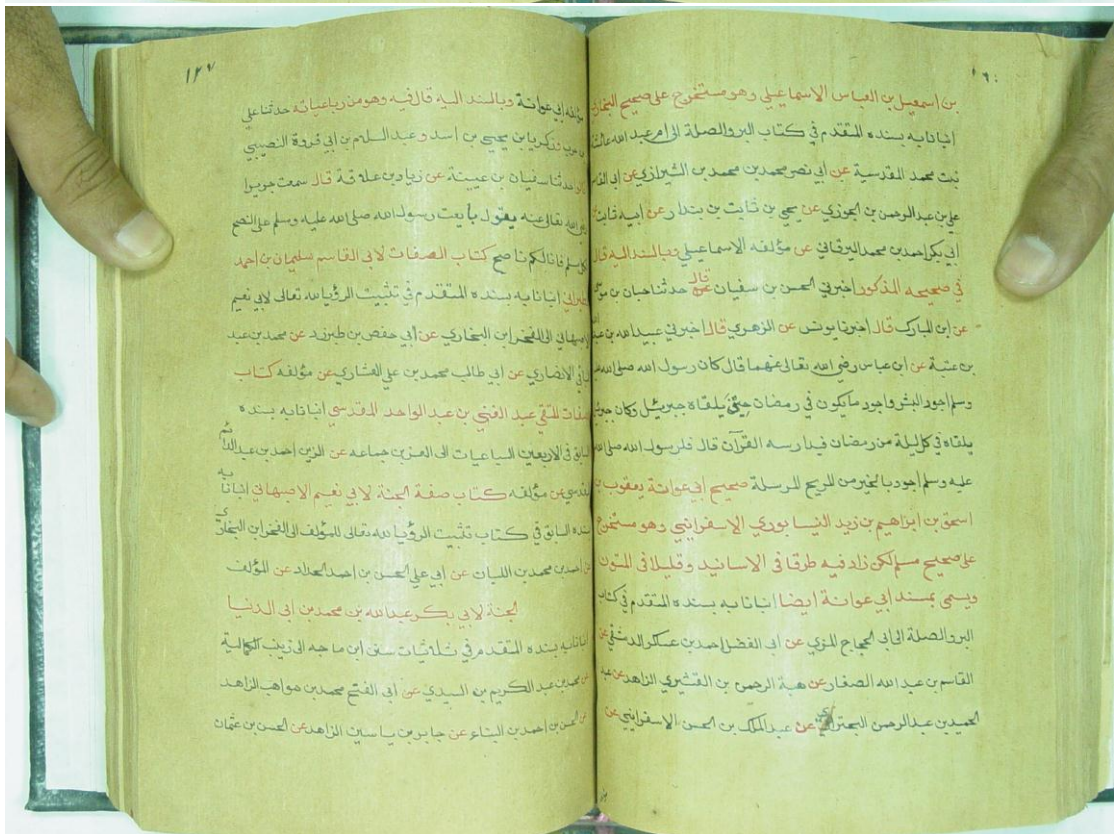 ١٦٠
بن اسمعيل بن العباس الاسماعيلي وهو مستخرج على صحيح البخاري
انبانا به بسنده المتقدم في كتاب البر والصلة الى ام عبد الله عائشة
بنت محمد المقدسية عن أبي نصر محمد بن محمد بن الشيرازي عن ابي القاسم
علي بن عبد الرحمن بن الجوزي عن يحيى بن ثابت بن بندار عن أبيه ثابت عن
أبي بكر احمد بن محمد البرقاني عن مؤلفه الاسماعيلي وبالسند اليه قال
في صحيحه المذكور اخبرني الحسن بن سفيان قال حدثنا حبان بن موسى
عن ابن المبارك قال اخبرنا يونس عن الزهري قال اخبرني عبيد الله بن عبد الله
بن عتبة عن ابن عباس رضي الله تعالى عنهما قال كان رسول الله صلى الله عليه
وسلم أجود البشر واجود ما يكون في رمضان حين يلقاه جبريل وكان جبريل
يلقاه في كل ليلة من رمضان فيدارسه القرآن قال فلرسول الله صلى الله
عليه وسلم أجود بالخير من الريح المرسلة صحيح أبي عوانة يعقوب بن
اسحق بن ابراهيم بن زيد النيسابوري الاسفرايني وهو مستخرج
على صحيح مسلم لكن زاد فيه طرقا في الاسانيد وقليلا في المتون
ويسمى بمسند أبي عوانة ايضا انبانا به بسنده المتقدم في كتاب
البر والصلة الى ابي الحجاج المزي عن ابي الفضل احمد بن عساكر الدمشقي عن
القاسم بن عبد الله الصفار عن هبة الرحمن بن القشيري الزاهد عن عبد
الحميد بن عبد الرحمن البحتري عن عبد الملك بن الحسن الاسفرايني عن
١٢٧
مؤلفه ابي عوانة وبالسند اليه قال فيه وهو من رباعياته حدثنا علي
بن حرب وزكريا بن يحيى بن اسد وعبد السلام بن ابي فروة النصيبي
قالوا حدثنا سفيان بن عيينة عن زياد بن علاقة قال سمعت جريرا
رضي الله تعالى عنه يقول بايعت رسول الله صلى الله عليه وسلم على النصح
لكل مسلم فانا لكم ناصح كتاب الصفات لابي القاسم سليمان بن احمد
الطبراني انبانا به بسنده المتقدم في تثبيت الرؤيا لله تعالى لابي نعيم
الاصبهاني الى الفخر ابن البخاري عن أبي حفص بن طبرزد عن محمد بن عبد
الباقي الانصاري عن ابي طالب محمد بن علي العشاري عن مؤلفه كتاب
الصفات للتقي عبد الغني بن عبد الواحد المقدسي انبانا به بسنده
السابق في الاربعين السباعيات الى العز بن جماعه عن الزين احمد بن عبد الدائم
المقدسي عن مؤلفه كتاب صفة الجنة لابي نعيم الاصبهاني انبانا به
بسنده السابق في كتاب تثبيت الرؤيا لله تعالى للمؤلف الى الفخر ابن البخاري
عن احمد بن محمد بن اللبان عن أبي علي الحسن بن احمد الحداد عن المؤلف
الجنة لابي بكر عبد الله بن محمد بن ابي الدنيا
انبانا به بسنده المتقدم في ثلاثيات سنن ابن ماجه الى زينب الكمالية
عن محمد بن عبد الكريم بن السيدي عن أبي الفتح محمد بن مواهب الزاهد
عن الحسن بن احمد بن البناء عن جابر بن ياسين الزاهد عن الحسن بن عثمان